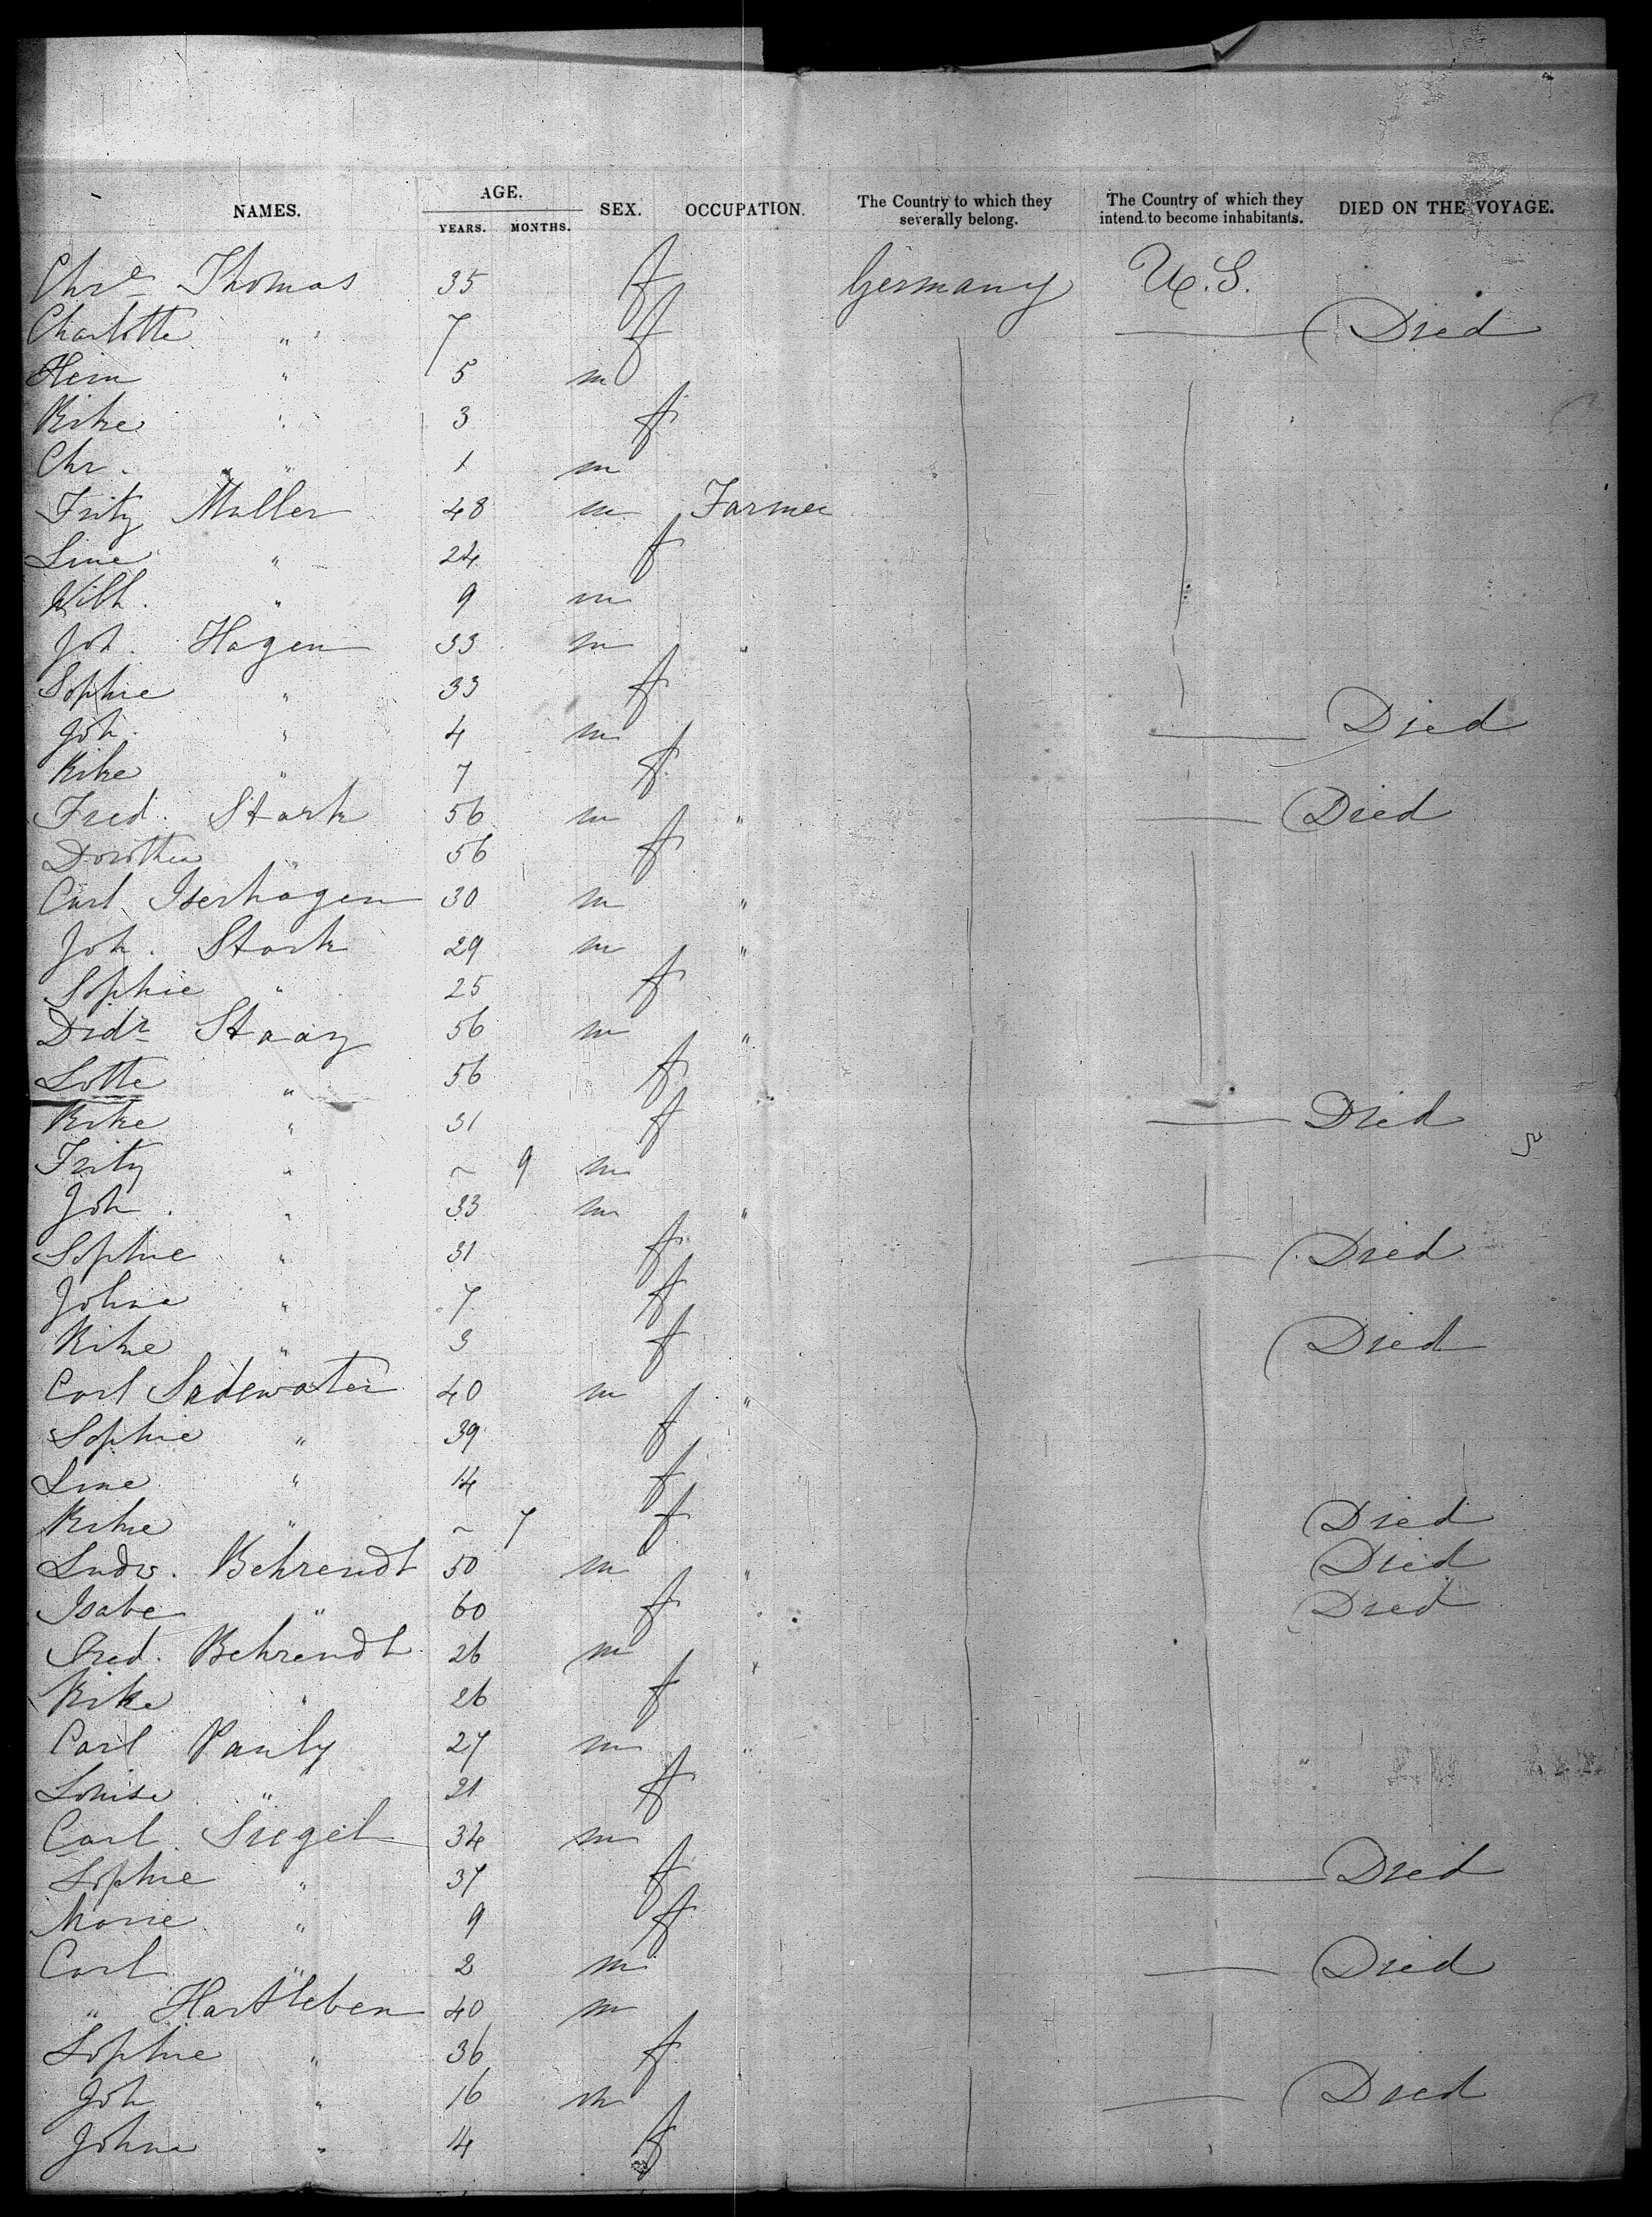 NAMES. AGE. YEARS. MONTHS. SEX. OCCUPATION. The Country to which they severally belong. The Country of which they intend to become inhabitants. DIED ON THE VOYAGE.
Chre Thomas 35 f Germany U.S.
Charlotte " 7 f Died
Hein " 5 m
Rike " 3 f
Chr. " 1 m
Fritz Muller 48 m Farmer
Line " 24 f
Wilh. " 9 m
Joh. Hagen 33 m "
Sophie " 33 f
Joh. " 4 m Died
Rike " 7 f
Fred. Stark 56 m " Died
Dorothea " 56 f
Carl Iserhagen 30 m "
Joh. Stark 29 m "
Sophie " 25 f
Didr Staaz 56 m "
Lotte " 56 f
Rike " 31 f Died
Fritz " ~ 9 m
Joh. " 33 m "
Sophie " 31 f Died
Johne " 7 f
Rike " 3 f Died
Carl Sadewater 40 m "
Sophie " 39 f
Line " 14 f
Rike " ~ 7 f Died
Ludw. Behrendt 50 m " Died
Isabe " 60 f Died
Fred. Behrendt 26 m "
Rike " 26 f
Carl Pauly 27 m "
Louise " 21 f
Carl Siegel 34 m
Sophie " 37 f Died
Marie " 9 f
Carl " 2 m Died
" Hartleben 40 m
Sophie " 36 f
Joh " 16 m Died
Johne " 14 f